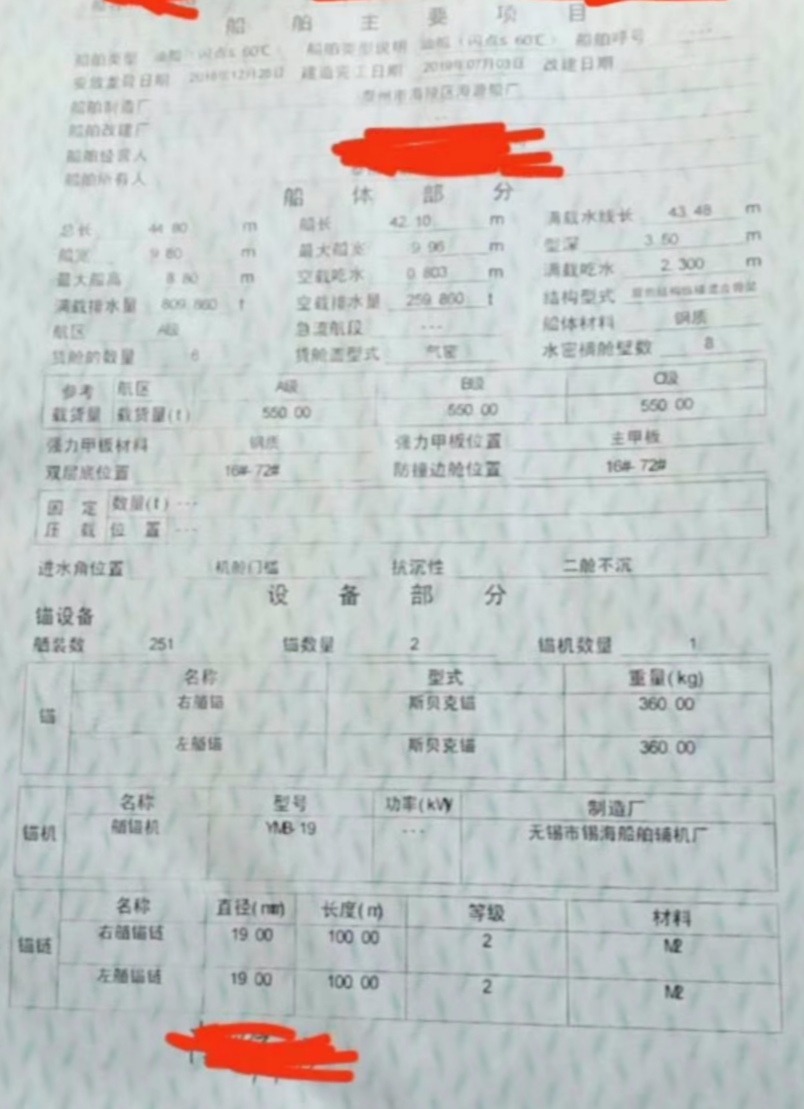 船 舶 主 要 项 目
船舶类型 油船（闪点≤ 60℃） 船舶类型说明 油船（闪点≤ 60℃） 船舶呼号 ---
安放龙骨日期 2018年12月28日 建造完工日期 2019年07月03日 改建日期
船舶制造厂 泰州市海陵区海源船厂
船舶改建厂 ---
船舶经营人
船舶所有人
船 体 部 分
总长 44 80 m 船长 42 10 m 满载水线长 43 48 m
船宽 9 80 m 最大船宽 9 96 m 型深 3 50 m
最大船高 8 80 m 空载吃水 0 803 m 满载吃水 2 300 m
满载排水量 809 860 t 空载排水量 259 860 t 结构型式
航区 A级 急流航段 --- 船体材料 钢质
货舱的数量 6 货舱盖型式 气密 水密横舱壁数 8
参考 航区 A级 B级 C级
载货量 载货量(t) 550 00 550 00 550 00
强力甲板材料 钢质 强力甲板位置 主甲板
双层底位置 16#-72# 防撞边舱位置 16#-72#
固 定 数量(t) ---
压 载 位 置 ---
进水角位置 机舱门槛 抗沉性 二舱不沉
设 备 部 分
锚设备
舾装数 251 锚数量 2 锚机数量 1
名称 型式 重量(kg)
锚
右艏锚 斯贝克锚 360 00
左艏锚 斯贝克锚 360 00
名称 型号 功率(kW) 制造厂
锚机 艏锚机 YMB-19 --- 无锡市锡海船舶辅机厂
名称 直径(mm) 长度(m) 等级 材料
锚链
右艏锚链 19 00 100 00 2 M2
左艏锚链 19 00 100 00 2 M2